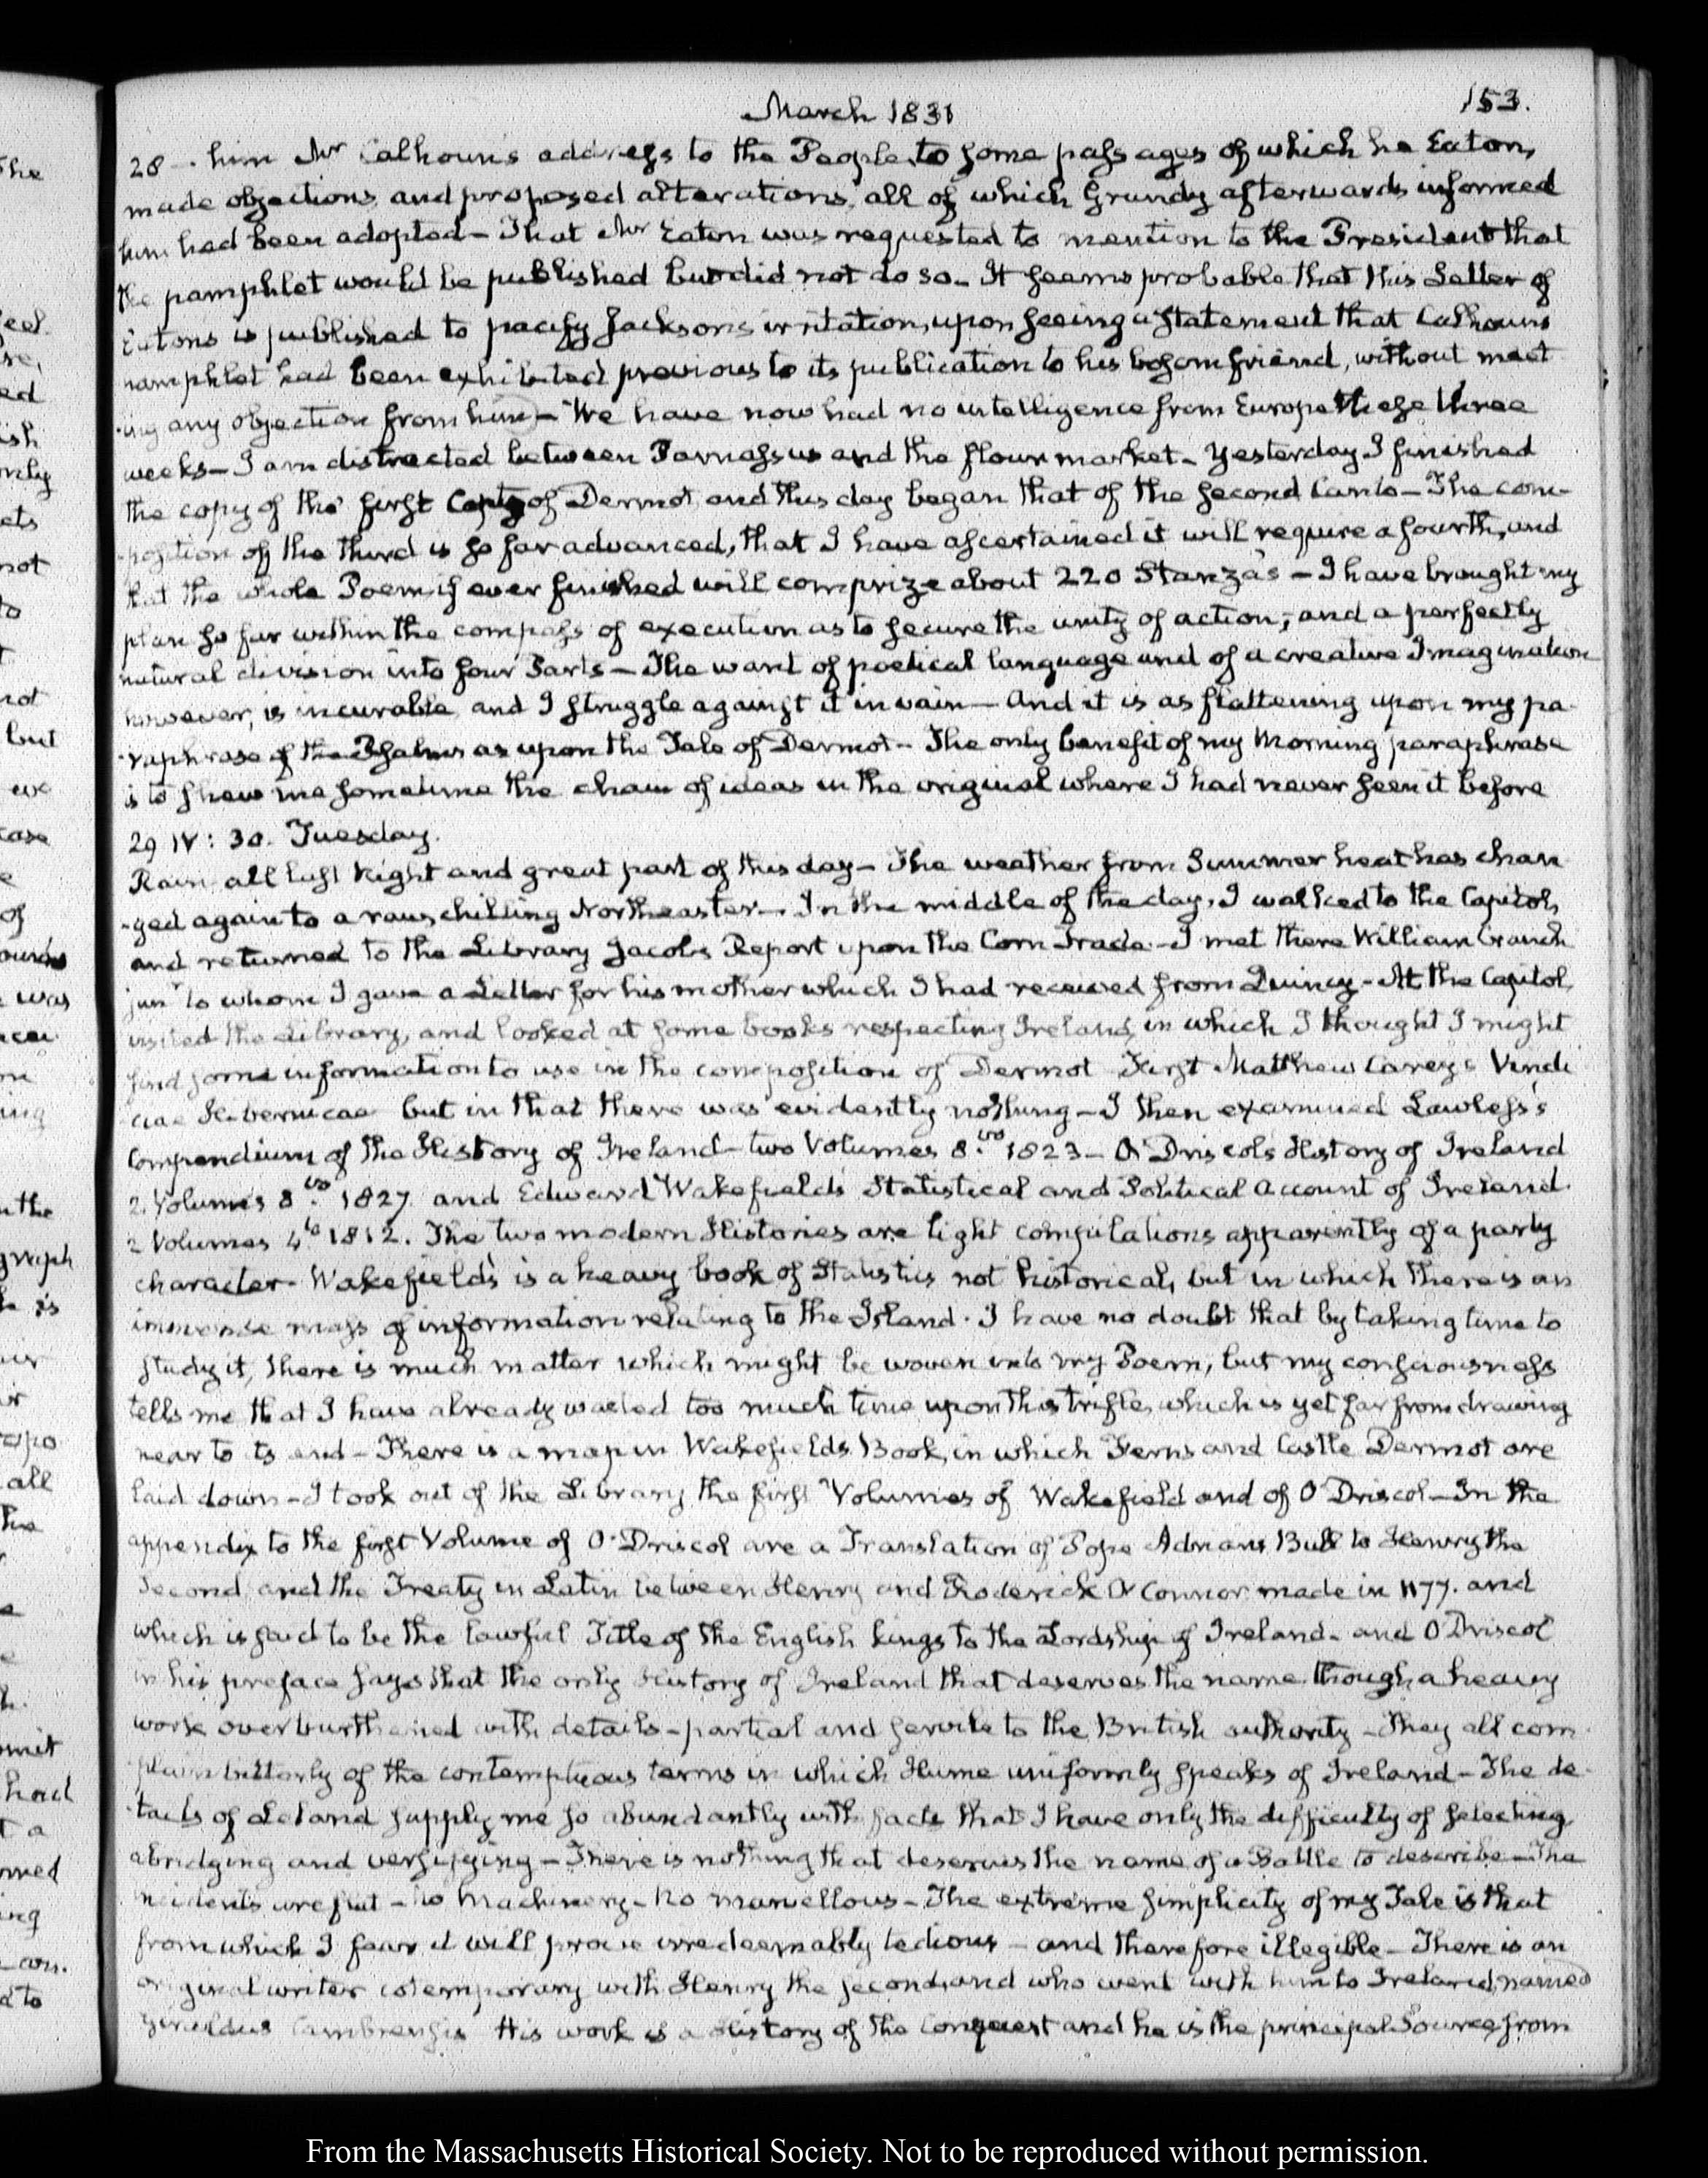 March 1831
153.
28 — him Mr Calhoun's address to the People, to some passages of which he Eaton,
made objections, and proposed alterations, all of which Grundy afterwards informed
him had been adopted — That Mr Eaton was requested to mention to the President that
the pamphlet would be published but did not do so — It seems probable that this Letter of
Eatons is published to pacify Jacksons irritation, upon seeing a statement that Calhouns
pamphlet had been exhibited previous to its publication to his bosom friend, without meet
-ing any objection from him — We have now had no intelligence from Europe these three
weeks — I am distracted between Parnassus and the flour market — Yesterday I finished
the copy of the first Canto of Dermot, and this day began that of the second Canto — The com-
-position of the third is so far advanced, that I have ascertained it will require a fourth, and
that the whole Poem if ever finished will comprize about 220 Stanza's — I have brought my
plan so far within the compass of execution as to secure the unity of action, and a perfectly
natural division into four Parts — The want of poetical language and of a creative Imagination
however, is incurable, and I struggle against it in vain — And it is as flattening upon my pa-
-raphrase of the Psalms as upon the Tale of Dermot — The only benefit of my Morning paraphrase
is to shew me sometime the chain of ideas in the original where I had never seen it before
29 IV: 30. Tuesday.
Rain all last Night and great part of this day — The weather from Summer heat has chan
-ged again to a raw chilling Northeaster — In the middle of the day, I walked to the Capitol,
and returned to the Library Jacobs Report upon the Corn Trade — I met there William Cranch
junr to whom I gave a Letter for his mother which I had received from Quincy — At the Capitol,
visited the Library, and looked at some books respecting Ireland, in which I thought I might
find some information to use in the composition of Dermot First Matthew Carey's Vindi
ciae Hibernicae but in that there was evidently nothing — I then examined Lawless's
Compendium of the History of Ireland — two Volumes 8.vo 1823 — O'Driscols History of Ireland
2. Volumes 8.vo 1827. and Edward Wakefield's Statistical and Political Account of Ireland.
2 Volumes 4to 1812. The two modern Histories are light compilations apparently of a party
character. Wakefield's is a heavy book of Statistics not historical, but in which there is an
immense mass of information relating to the Island. I have no doubt that by taking time to
study it, there is much matter which might be woven into my Poem, but my consciousness
tells me that I have already wasted too much time upon this trifle, which is yet far from drawing
near to its end — There is a map in Wakefields Book, in which Ferns and Castle Dermot are
laid down — I took out of the Library the first Volumes of Wakefield and of O'Driscol — In the
appendix to the first Volume of O'Driscol are a Translation of Pope Adrians Bull to Henry the
Second, and the Treaty in Latin between Henry and Roderick O'Connor made in 1177. and
which is said to be the lawful Title of the English kings to the Lordship of Ireland — and O'Driscol
in his preface says that the only History of Ireland that deserves the name though a heavy
work overburthened with details — partial and servile to the British authority — They all com-
-plain bitterly of the contemptuous terms in which Hume uniformly speaks of Ireland — The de-
-tails of Leland supply me so abundantly with facts that I have only the difficulty of selecting
abridging and versifying — There is nothing that deserves the name of a Battle to describe — The
incidents are flat — No Machinery — No marvellous — The extreme simplicity of my Tale is that
from which I fear it will prove irredeemably tedious — and therefore illegible — There is an
original writer cotemporary with Henry the second, and who went with him to Ireland, named
Giraldus Cambrensis His work is a History of the Conquest and he is the principal Source from
From the Massachusetts Historical Society. Not to be reproduced without permission.